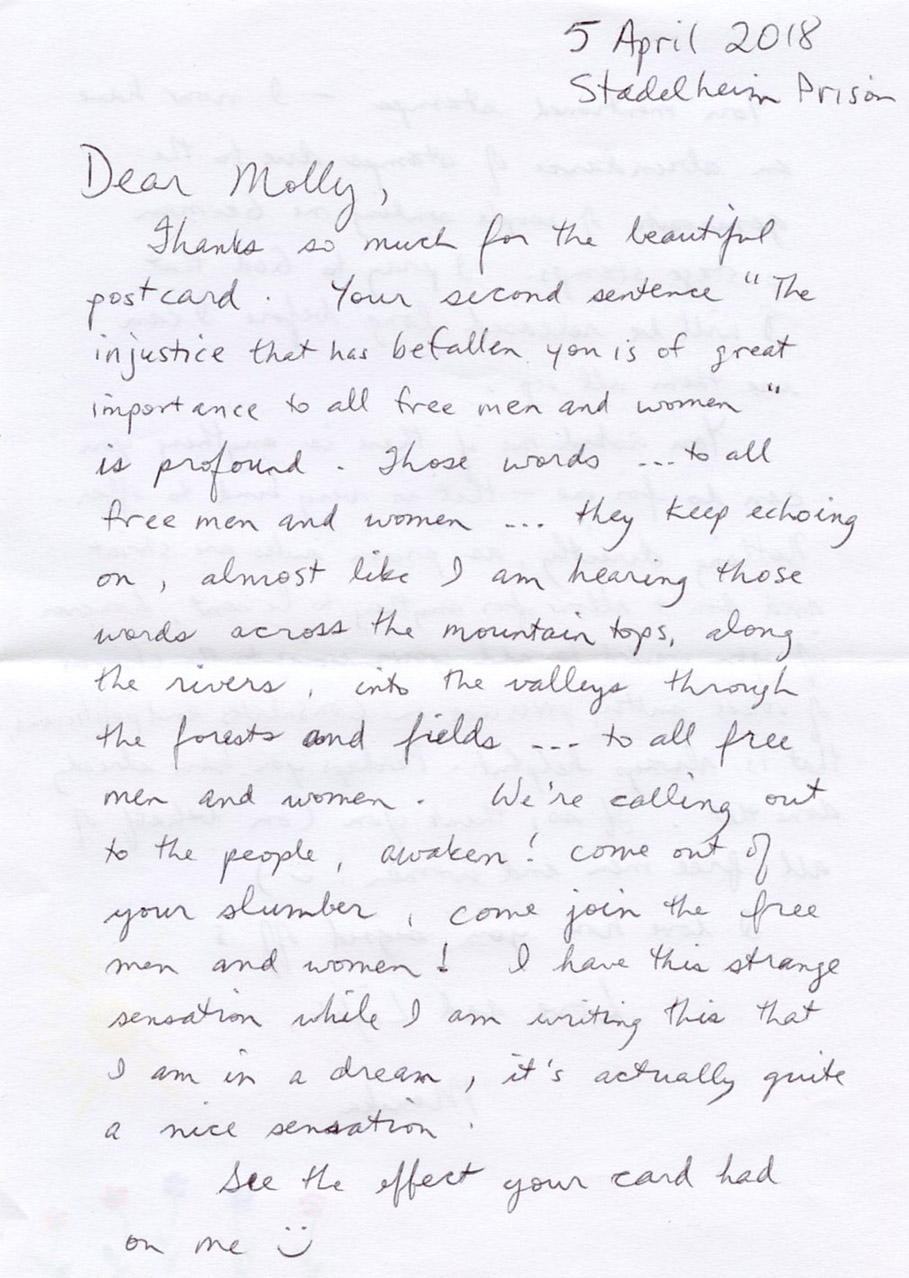 5 April 2018
Stadelheim Prison
Dear Molly,
Thanks so much for the beautiful
postcard. Your second sentence "The
injustice that has befallen you is of great
importance to all free men and women"
is profound. Those words ... to all
free men and women ... they keep echoing
on, almost like I am hearing those
words across the mountain tops, along
the rivers, into the valleys through
the forests and fields ... to all free
men and women. We're calling out
to the people, awaken! come out of
your slumber, come join the free
men and women! I have this strange
sensation while I am writing this that
I am in a dream, it's actually quite
a nice sensation.
See the effect your card had
on me :)